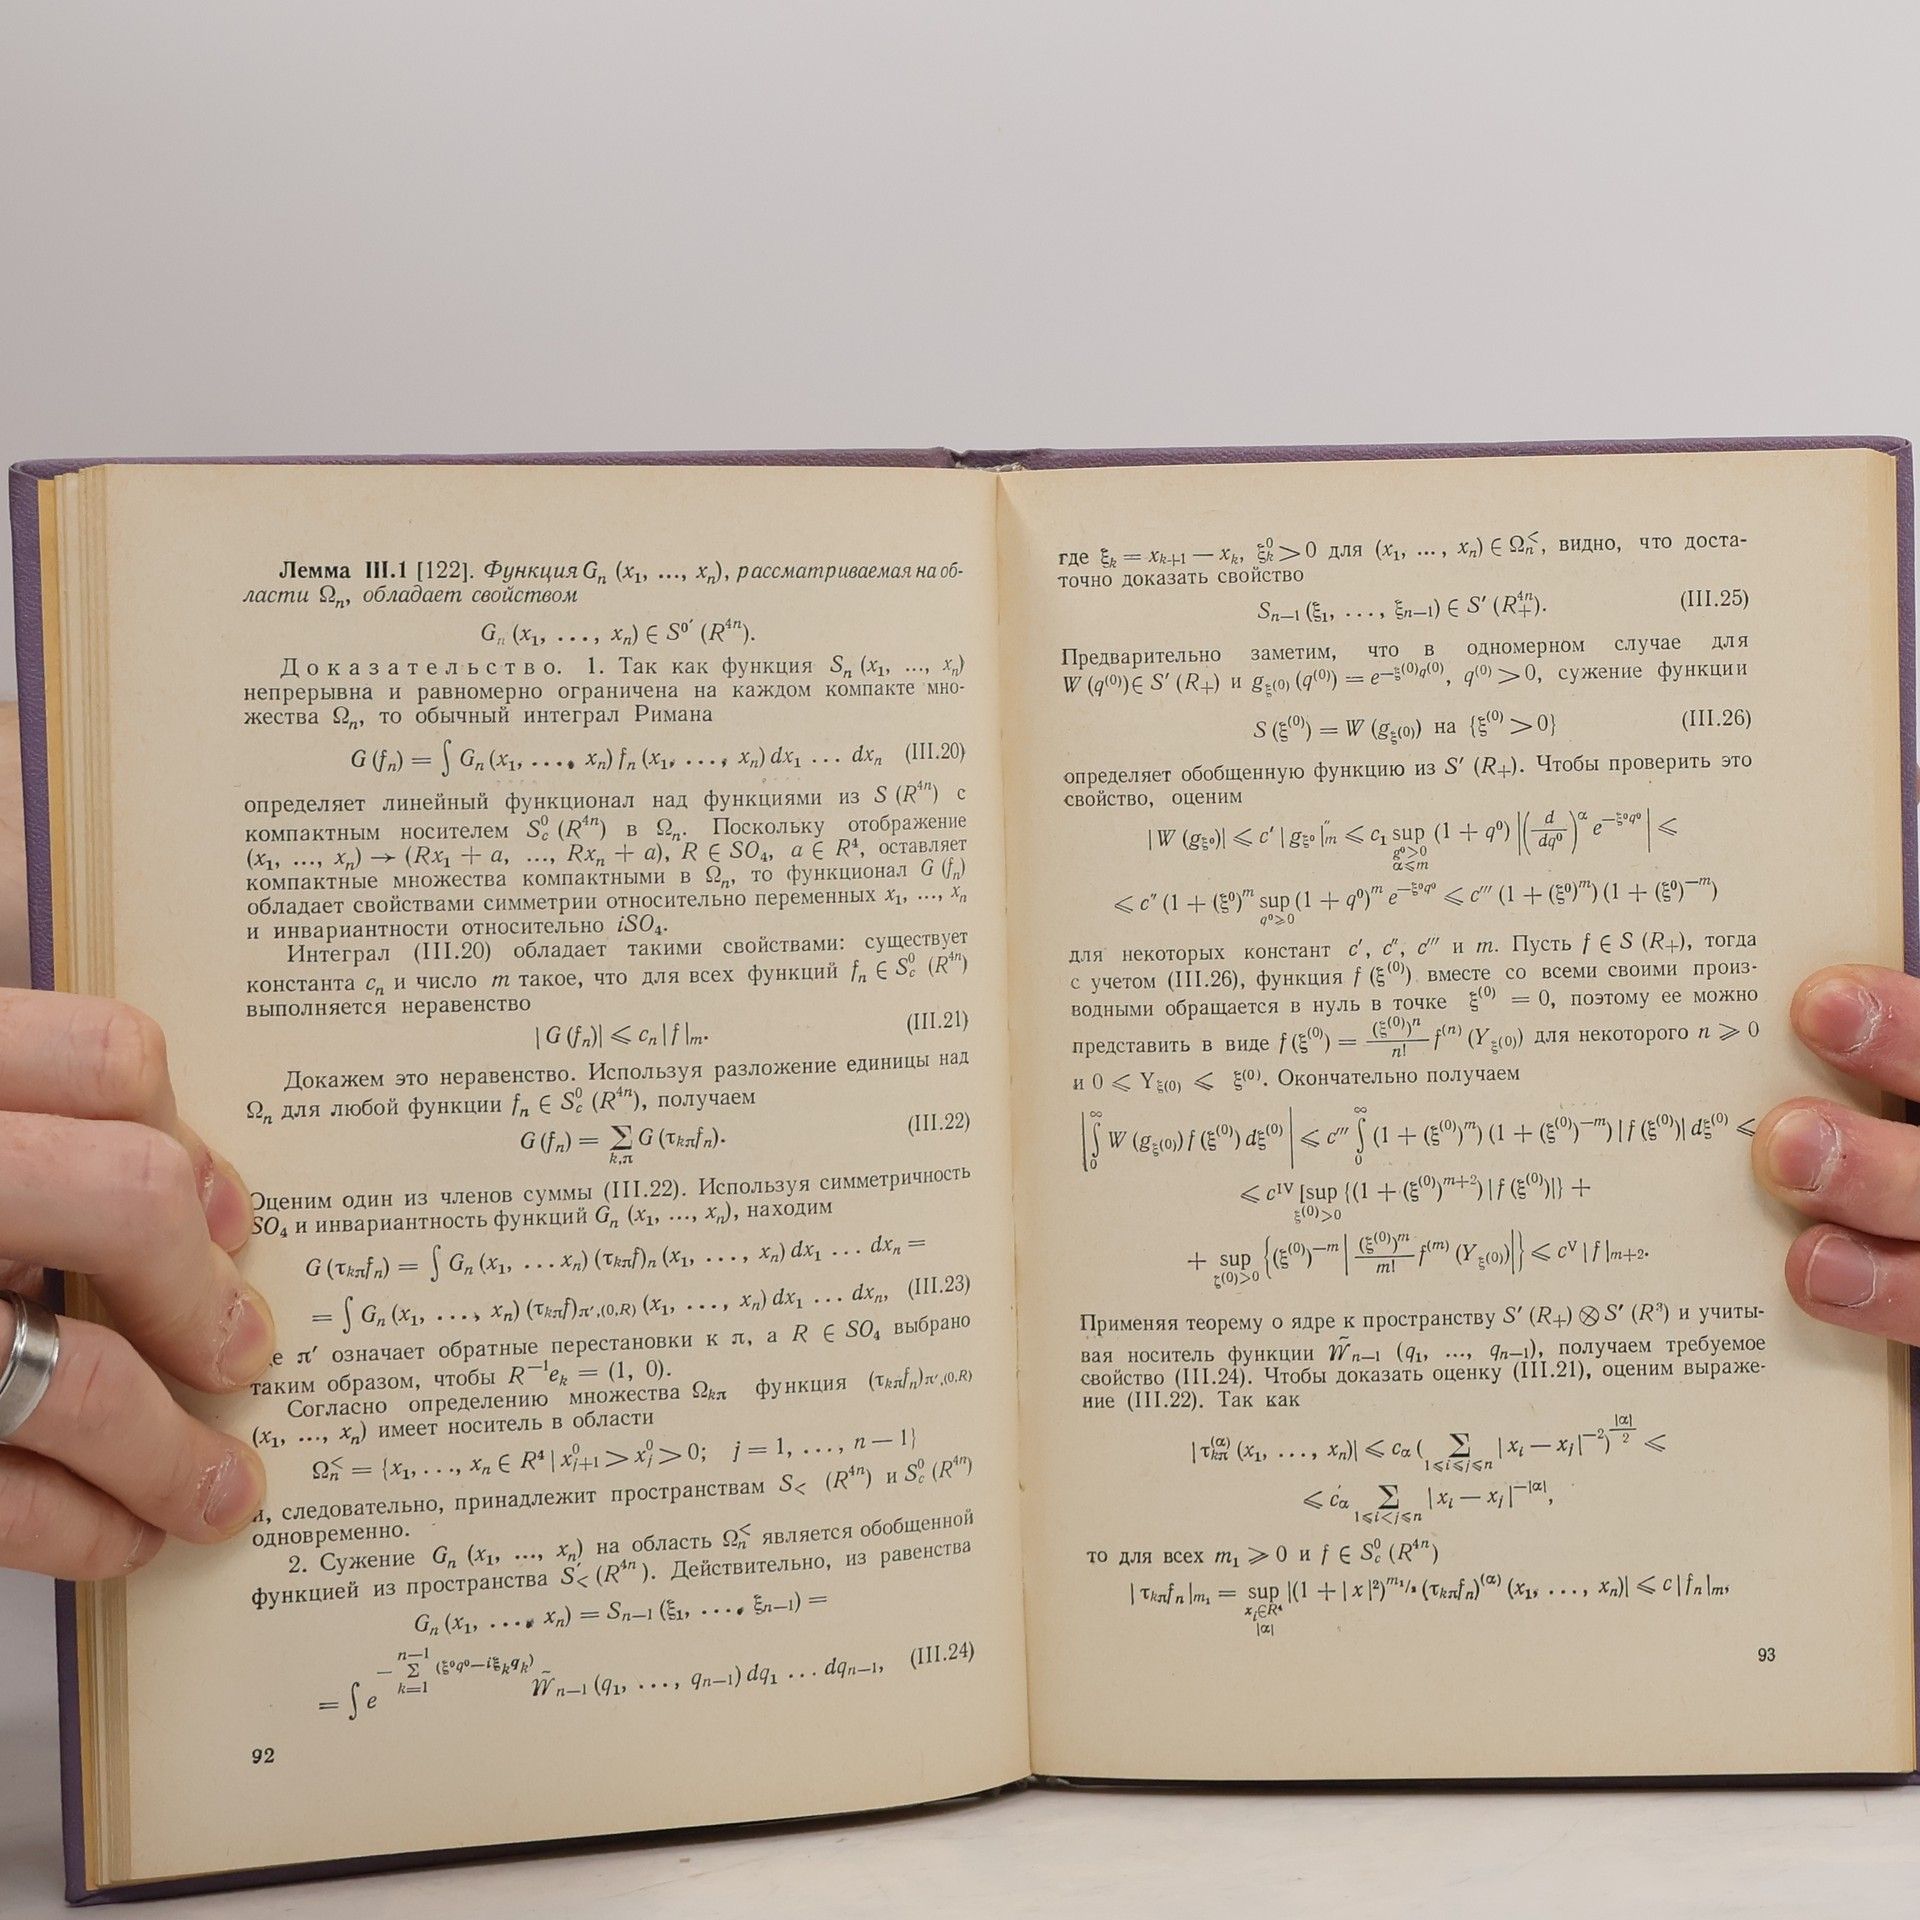 Лемма III.1 [122]. Функция Gₙ (x₁, ..., xₙ), рассматриваемая на об-
ласти Ωₙ, обладает свойством
Gₙ (x₁, ..., xₙ) ∈ S⁰′ (R⁴ⁿ).
Доказательство. 1. Так как функция Sₙ (x₁, ..., xₙ)
непрерывна и равномерно ограничена на каждом компакте мно-
жества Ωₙ, то обычный интеграл Римана
G (fₙ) = ∫ Gₙ (x₁, ..., xₙ) fₙ (x₁, ..., xₙ) dx₁ ... dxₙ (III.20)
определяет линейный функционал над функциями из S (R⁴ⁿ) с
компактным носителем S_c^0 (R⁴ⁿ) в Ωₙ. Поскольку отображение
(x₁, ..., xₙ) → (Rx₁ + a, ..., Rxₙ + a), R ∈ SO₄, a ∈ R⁴, оставляет
компактные множества компактными в Ωₙ, то функционал G (fₙ)
обладает свойствами симметрии относительно переменных x₁, ..., xₙ
и инвариантности относительно iSO₄.
Интеграл (III.20) обладает такими свойствами: существует
константа cₙ и число m такое, что для всех функций fₙ ∈ S_c^0 (R⁴ⁿ)
выполняется неравенство
| G (fₙ)| ⩽ cₙ | f |ₘ. (III.21)
Докажем это неравенство. Используя разложение единицы над
Ωₙ для любой функции fₙ ∈ S_c^0 (R⁴ⁿ), получаем
G (fₙ) = ∑_{k,π} G (τ_{kπ}fₙ). (III.22)
Оценим один из членов суммы (III.22). Используя симметричность
SO₄ и инвариантность функций Gₙ (x₁, ..., xₙ), находим
G (τ_{kπ}fₙ) = ∫ Gₙ (x₁, ... xₙ) (τ_{kπ}f)ₙ (x₁, ..., xₙ) dx₁ ... dxₙ =
= ∫ Gₙ (x₁, ..., xₙ) (τ_{kπ}f)_{π′,(0,R)} (x₁, ..., xₙ) dx₁ ... dxₙ, (III.23)
е π′ означает обратные перестановки к π, а R ∈ SO₄ выбрано
таким образом, чтобы R⁻¹eₖ = (1, 0).
Согласно определению множества Ω_{kπ} функция (τ_{kπ}fₙ)_{π′,(0,R)}
(x₁, ..., xₙ) имеет носитель в области
Ω_n^< = {x₁, ..., xₙ ∈ R⁴ | x_{j+1}^0 > x_j^0 > 0; j = 1, ..., n − 1}
и, следовательно, принадлежит пространствам S_< (R⁴ⁿ) и S_c^0 (R⁴ⁿ)
одновременно.
2. Сужение Gₙ (x₁, ..., xₙ) на область Ω_n^< является обобщенной
функцией из пространства S′_< (R⁴ⁿ). Действительно, из равенства
Gₙ (x₁, ..., xₙ) = S_{n−1} (ξ₁, ..., ξ_{n−1}) =
= ∫ e^{−∑_{k=1}^{n−1} (ξ⁰q⁰−iξₖqₖ)} W̃_{n−1} (q₁, ..., q_{n−1}) dq₁ ... dq_{n−1}, (III.24)
92
где ξₖ = x_{k+1} − xₖ, ξ_k^0 > 0 для (x₁, ..., xₙ) ∈ Ω_n^<, видно, что доста-
точно доказать свойство
S_{n−1} (ξ₁, ..., ξ_{n−1}) ∈ S′ (R_+^{4n}). (III.25)
Предварительно заметим, что в одномерном случае для
W (q⁽⁰⁾) ∈ S′ (R₊) и g_{ξ⁽⁰⁾} (q⁽⁰⁾) = e^{−ξ⁽⁰⁾q⁽⁰⁾}, q⁽⁰⁾ > 0, сужение функции
S (ξ⁽⁰⁾) = W (g_{ξ⁽⁰⁾}) на {ξ⁽⁰⁾ > 0} (III.26)
определяет обобщенную функцию из S′ (R₊). Чтобы проверить это
свойство, оценим
| W (g_{ξ⁰})| ⩽ c′ | g_{ξ⁰} |″_m ⩽ c₁ sup_{g⁰>0, α⩽m} (1 + q⁰) |(d/dq⁰)^α e^{−ξ⁰q⁰}| ⩽
⩽ c″ (1 + (ξ⁰)^m sup_{q⁰⩾0} (1 + q⁰)^m e^{−ξ⁰q⁰} ⩽ c‴ (1 + (ξ⁰)^m) (1 + (ξ⁰)^{−m})
для некоторых констант c′, c″, c‴ и m. Пусть f ∈ S (R₊), тогда
с учетом (III.26), функция f (ξ⁽⁰⁾) вместе со всеми своими произ-
водными обращается в нуль в точке ξ⁽⁰⁾ = 0, поэтому ее можно
представить в виде f (ξ⁽⁰⁾) = (ξ⁽⁰⁾)ⁿ/n! f⁽ⁿ⁾ (Y_{ξ⁽⁰⁾}) для некоторого n ⩾ 0
и 0 ⩽ Y_{ξ⁽⁰⁾} ⩽ ξ⁽⁰⁾. Окончательно получаем
|∫_0^∞ W (g_{ξ⁽⁰⁾}) f (ξ⁽⁰⁾) dξ⁽⁰⁾| ⩽ c‴ ∫_0^∞ (1 + (ξ⁽⁰⁾)^m) (1 + (ξ⁽⁰⁾)^{−m}) | f (ξ⁽⁰⁾)| dξ⁽⁰⁾ ⩽
⩽ c^{IV} [sup_{ξ⁽⁰⁾>0} {(1 + (ξ⁽⁰⁾)^{m+2}) | f (ξ⁽⁰⁾)|} +
+ sup_{ζ⁽⁰⁾>0} {(ξ⁽⁰⁾)^{−m} | (ξ⁽⁰⁾)^m/m! f^{(m)} (Y_{ξ⁽⁰⁾})|} ⩽ c^V | f |_{m+2}.
Применяя теорему о ядре к пространству S′ (R₊) ⊗ S′ (R³) и учиты-
вая носитель функции W̃_{n−1} (q₁, ..., q_{n−1}), получаем требуемое
свойство (III.24). Чтобы доказать оценку (III.21), оценим выраже-
ние (III.22). Так как
| τ_{kπ}^{(α)} (x₁, ..., xₙ)| ⩽ c_α ( ∑_{1⩽i⩽j⩽n} | x_i − x_j |^{−2})^{|α|/2} ⩽
⩽ c′_α ∑_{1⩽i<j⩽n} | x_i − x_j |^{−|α|},
то для всех m₁ ⩾ 0 и f ∈ S_c^0 (R⁴ⁿ)
| τ_{kπ}fₙ |_{m₁} = sup_{x_i∈R⁴, |α|} |(1 + | x |²)^{m₁/₂} (τ_{kπ}fₙ)^{(α)} (x₁, ..., xₙ)| ⩽ c | fₙ |ₘ,
93